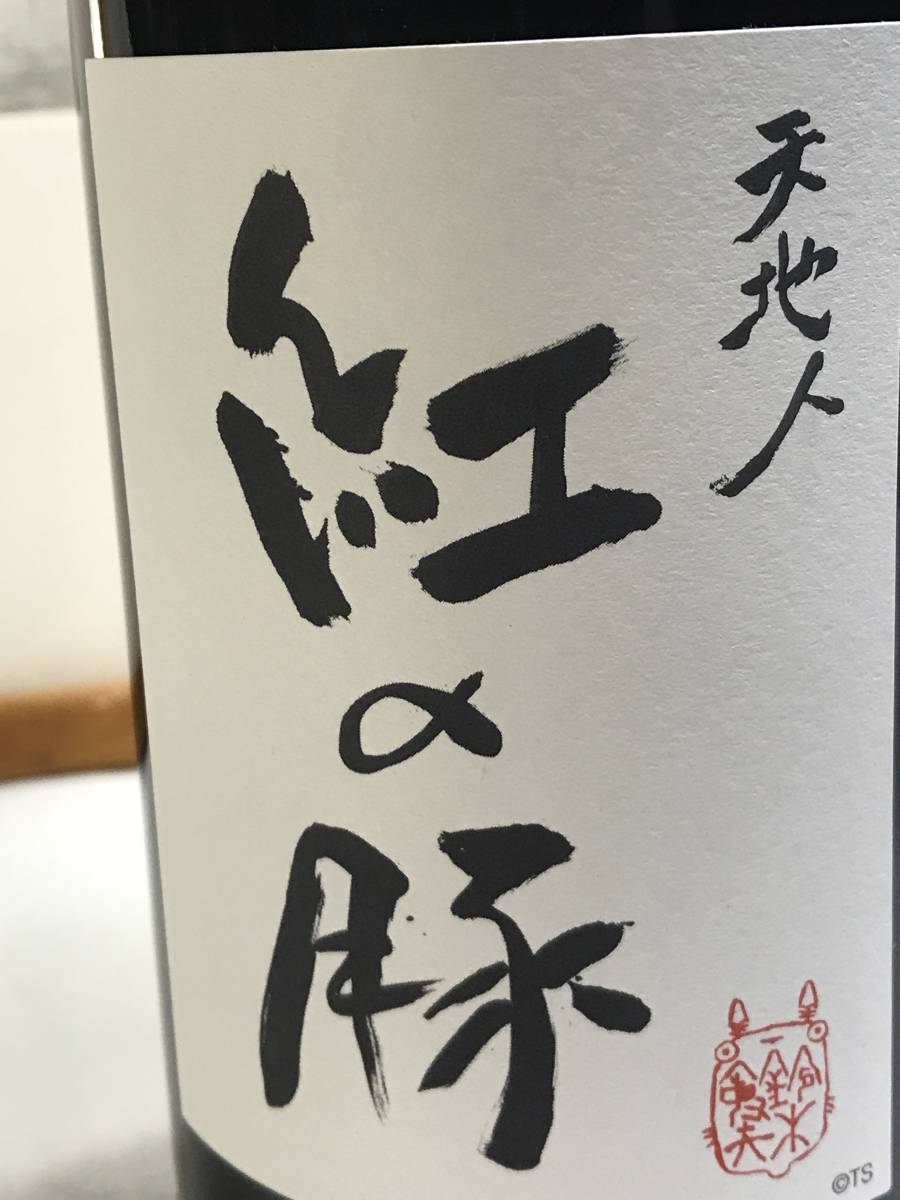 天地人
紅の豚
鈴木敏夫
©TS